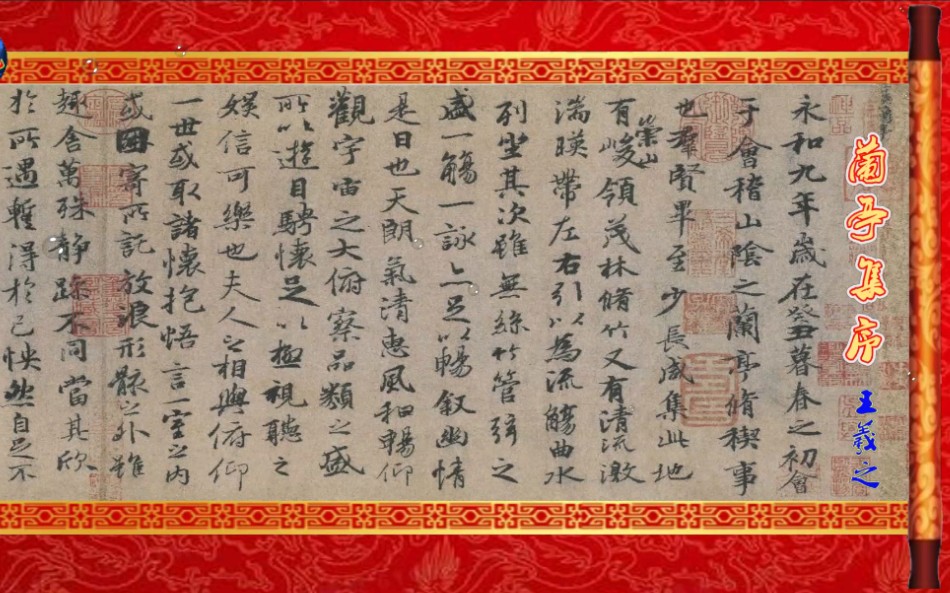 蘭亭集序
王羲之
永和九年歲在癸丑暮春之初會
于會稽山陰之蘭亭脩稧事
也羣賢畢至少長咸集此地
有崇山峻領茂林脩竹又有清流激
湍暎帶左右引以為流觴曲水
列坐其次雖無絲竹管弦之
盛一觴一詠亦足以暢敘幽情
是日也天朗氣清惠風和暢仰
觀宇宙之大俯察品類之盛
所以遊目騁懷足以極視聽之
娛信可樂也夫人之相與俯仰
一世或取諸懷抱悟言一室之內
或因寄所託放浪形骸之外雖
趣舍萬殊靜躁不同當其欣
於所遇暫得於己怏然自足不